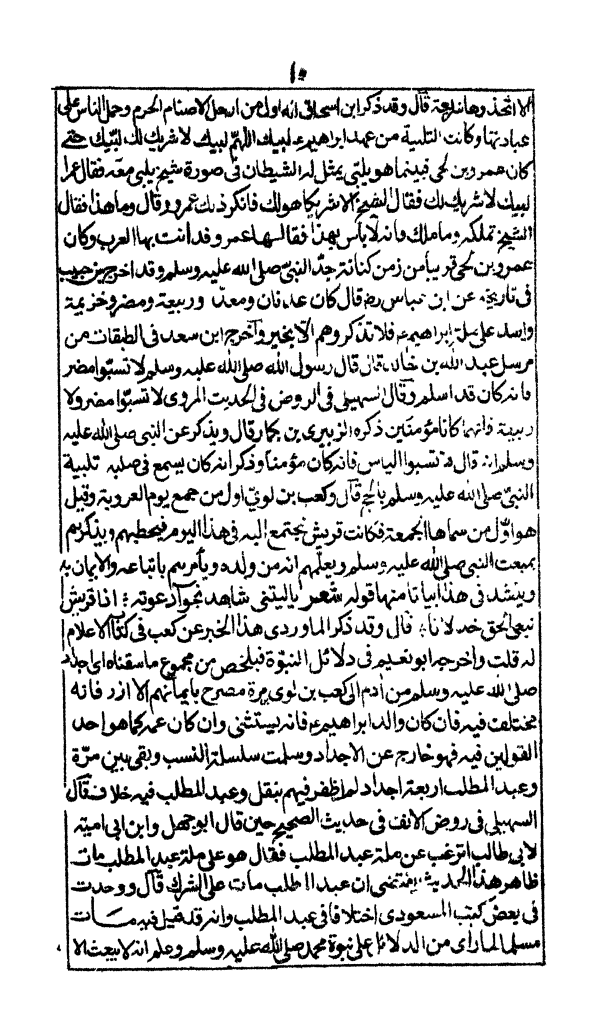 ١٠
الا اتخذوها بدعة قال وقد ذكر ابن اسحاق انه اول من ادخل الاصنام الحرم وحمل الناس على
عبادتها وكانت التلبية من عهد ابراهيم ع لبيك اللهم لبيك لا شريك لك لبيك حتى
كان عمرو بن لحى فبينما هو يلبى يمثل له الشيطان فى صورة شيخ يلبى معه فقال عمرا
لبيك لا شريك لك فقال الشيخ الا شريكا هو لك فانكر ذلك عمرو وقال وما هذا فقال
الشيخ تملكه وما ملك وانه لا باس بهذا فقالها عمرو فدانت بها العرب وكان
عمرو بن لحى قريبا من زمن كنانة جد النبى صلى الله عليه وسلم وقد اخرج بن حبيب
فى تاريخه عن ابن عباس رض قال كان عدنان ومعد وربيعة ومضر وخزيمة
واسد على ملة ابراهيم ع فلا تذكروهم الا بخير واخرج ابن سعد فى الطبقات من
مرسل عبد الله بن خالد قال قال رسول الله صلى الله عليه وسلم لا تسبوا مضر
فانه كان قد اسلم وقال السهيلى فى الروض فى الحديث المروى لا تسبوا مضر ولا
ربيعة فانهما كانا مؤمنين ذكره الزبيرى بن بكار قال ويذكر عن النبى صلى الله عليه
وسلم انه قال لا تسبوا الياس فانه كان مؤمنا وذكر انه كان يسمع فى صلبه تلبية
النبى صلى الله عليه وسلم بالحج قال وكعب بن لوى اول من جمع يوم العروبة وقيل
هو اول من سماها الجمعة فكانت قريش تجتمع اليه فى هذا اليوم فيخطبهم ويذكرهم
بمبعث النبى صلى الله عليه وسلم ويعلمهم انه من ولده ويأمرهم باتباعه والايمان به
وينشد فى هذا ابياتا منها قوله شعر ياليتنى شاهد نجوآء دعوته ؛ اذا قريش
تبغى الحق خذلانا ؛ قال وقد ذكر الماوردى هذا الخبر عن كعب فى كتاب الاعلام
له قلت واخرجه ابو نعيم فى دلائل النبوة فيلخص من مجموع ما سقناه ان اجداد
صلى الله عليه وسلم من ادم الى كعب بن لوى ومرة مصرح بايمانهم الا ازر فانه
مختلف فيه فان كان والد ابراهيم ع فانه يستثنى وان كان عمه كما هو احد
القولين فيه فهو خارج عن الاجداد وسلمت سلسلة النسب وبقى بين مرة
وعبد المطلب اربعة اجداد لم اظفر فيهم بنقل وعبد المطلب فيه خلاف قال
السهيلى فى روض الانف فى حديث الصحيح حين قال ابو جهل وابن ابى امية
لابى طالب اترغب عن ملة عبد المطلب فقال هو على ملة عبد المطلب مات
ظاهر هذا الحديث يقتضى ان عبد المطلب مات على الشرك قال ووجدت
فى بعض كتب المسعودى اختلافا فى عبد المطلب وانه قد قيل فيه مات
مسلما لما راى من الدلائل على نبوة محمد صلى الله عليه وسلم وعلم انه لا يبعث الا